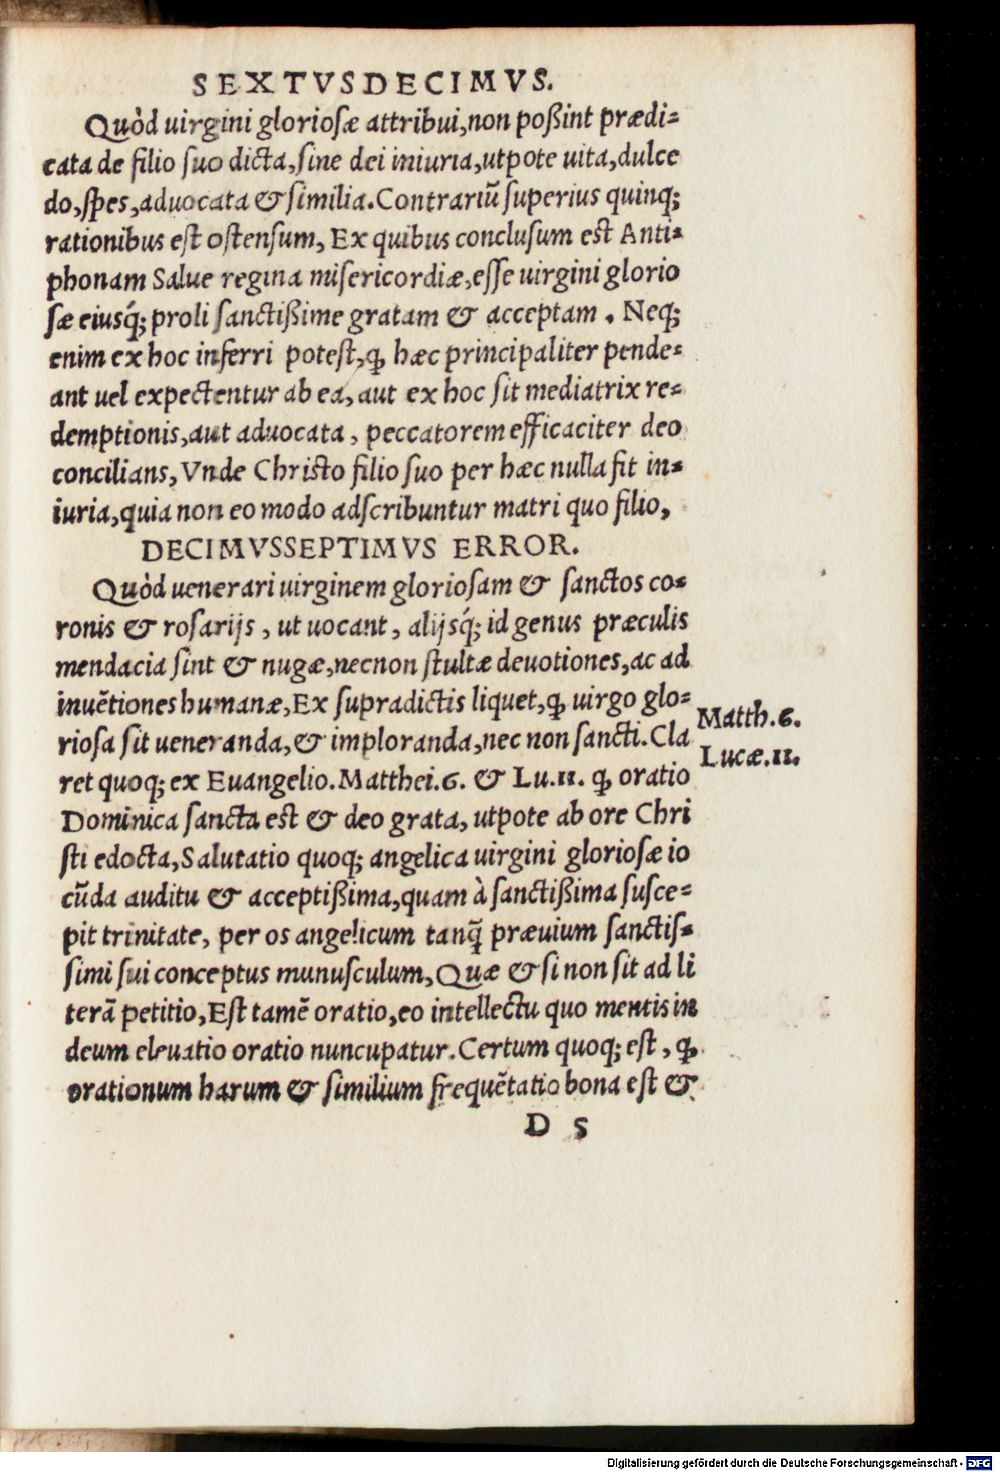 SEXTVSDECIMVS.
Quòd uirgini gloriosæ attribui,non poßint prædi=
cata de filio suo dicta,sine dei iniuria,utpote uita,dulce
do,spes,aduocata & similia.Contrariũ superius quinq;
rationibus est ostensum, Ex quibus conclusum est Anti=
phonam Salue regina misericordiæ,esse uirgini glorio
sæ eiusq́; proli sanctißime gratam & acceptam . Neq;
enim ex hoc inferri potest,ꝙ hæc principaliter pende=
ant uel expectentur ab ea, aut ex hoc sit mediatrix re=
demptionis,aut aduocata , peccatorem efficaciter deo
concilians, Vnde Christo filio suo per hæc nulla fit in=
iuria,quia non eo modo adscribuntur matri quo filio,
DECIMVSSEPTIMVS ERROR.
Quòd uenerari uirginem gloriosam & sanctos co=
ronis & rosarijs , ut uocant , alijsq́; id genus præculis
mendacia sint & nugæ,necnon stultæ deuotiones,ac ad
inuẽtiones humanæ,Ex supradictis liquet,ꝙ uirgo glo=
riosa sit ueneranda,& imploranda,nec non sancti.Cla
Matth.6.
Lucæ.11.
ret quoq; ex Euangelio.Matthei.6. & Lu.11. ꝙ oratio
Dominica sancta est & deo grata, utpote ab ore Chri
sti edocta,Salutatio quoq; angelica uirgini gloriosæ io
cũda auditu & acceptißima,quam à sanctißima susce=
pit trinitate, per os angelicum tanq̃ præuium sanctis=
simi sui conceptus munusculum, Quæ & si non sit ad li
terã petitio,Est tamẽ oratio,eo intellectu quo mentis in
deum eleuatio oratio nuncupatur.Certum quoq; est , ꝙ
orationum harum & similium frequẽtatio bona est &
D 5
Digitalisierung gefördert durch die Deutsche Forschungsgemeinschaft - DFG